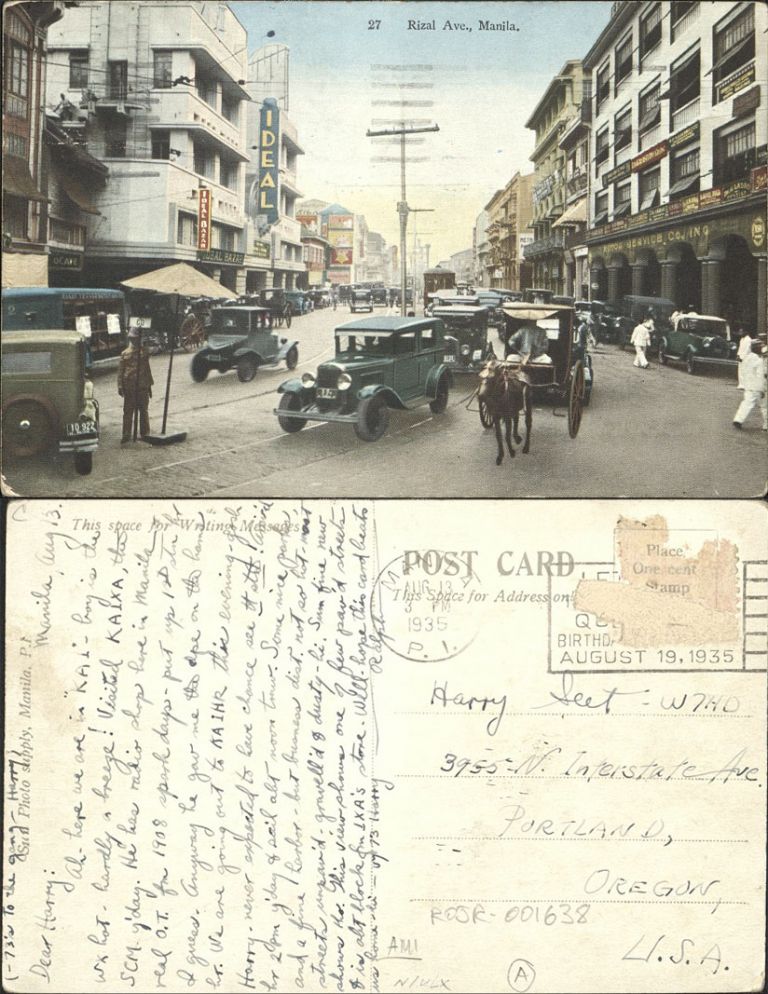 27 Rizal Ave., Manila.
IDEAL
IDEAL BAZAR
IDEAL BAZAR
CAFE
GO
10 922
MOTOR SERVICE CO., INC
This space for Writing Messages
Photo supply, Manila. P.I.
POST CARD
This Space for Address only
Place
One cent
Stamp
MANILA
AUG 13
3 PM
1935
P. I.
BIRTHDA
AUGUST 19, 1935
Manila, Aug 13.
Dear Harry:
Ah - here we are in "KA1" - boy is the
wx hot - hardly a breeze! Visited KA1XA the
SCM y'day. He has radio shop here in Manila
real O.T. fr 1908 spark days - put up 1st stn hr
I guess. Anyway he gav me the dope on the hams
hr. We are going out to KA1HR this evening - gosh
Harry - never expected to have chance see it still! Arrivd
hr 2 pm y'day & sail abt noon tmw. Some nice parks
and a fine harbor - but business dist. not so hot - most
streets unpav'd - gravell'd & dusty - hi. Sum fine new
shows tho. This view shows one of few pav'd streets
& is abt block fm 1XA's store. Well - hope this card beats
us home - hi vy 73 Harry
Ralph
(-73's to the gang - Harry)
Harry Seet - W7HD
3955-N. Interstate Ave.
PORTLAND,
OREGON,
U.S.A.
ROSR-001638
AM1
N1ULX
A